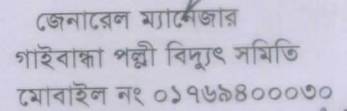 জেনারেল ম্যানেজার
গাইবান্ধা পল্লী বিদ্যুৎ সমিতি
মোবাইল নং ০১৭৬৯৪০০০৩০